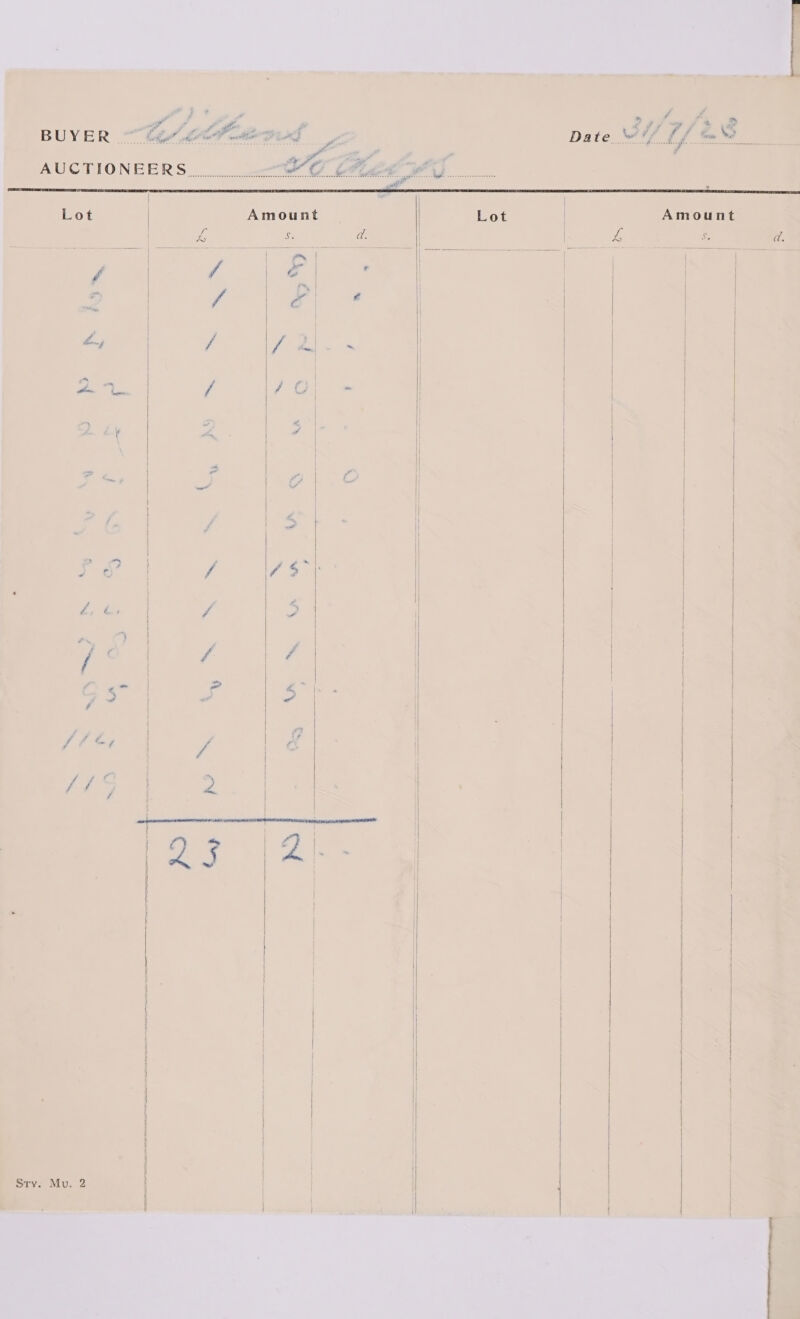 BUYER Date 31/7/28
AUCTIONEERS
Lot Amount Lot Amount
£ s. d. £ s. d.
1 1 8 -
2 1 8 -
4 1 12 - -
22 1 10 -
24 2 5 -
34 3 0 0
36 1 5 -
38 1 15 -
44 1 5
78 1 1
95 3 5 - -
114 1 8
119 2
23 2 - -
Sty. Mu. 2